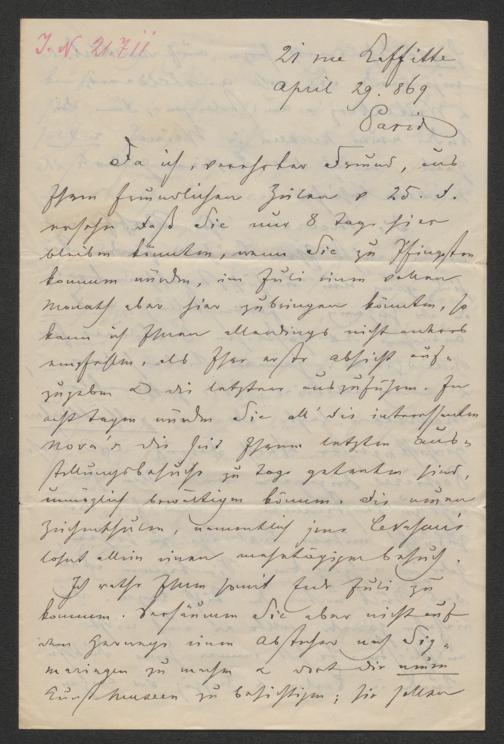 J. N. 21711
21 rue Laffitte
April 29. 869
Paris
Da ich, verehrter Freund, aus
Ihren freundlichen Zeilen v 25. d.
ersehe daß Sie nur 8 Tage hier
bleiben könnten, wenn Sie zu Pfingsten
kommen würden, im Juli einen vollen
Monath aber hier zubringen könnten, so
kann ich Ihnen allerdings nicht anders
empfehlen, als Ihre erste Absicht auf-
zugeben & die letztere auszuführen. In
acht Tagen würden Sie all' die interessanten
Nova's die seit Ihrem letzten Aus-
stellungsbesuche zu Tage getreten sind,
unmöglich bewältigen können. Die neuen
Zeichenschulen, namentlich jene
lohnt allein einen mehrtägigen Besuch.
Ich rathe Ihnen somit Ende Juli zu
kommen. Versäumen Sie aber nicht auf
dem Herwege einen Abstecher nach Sig-
maringen zu machen & dort die neuen
Kunstmuseen zu besichtigen; sie sollen